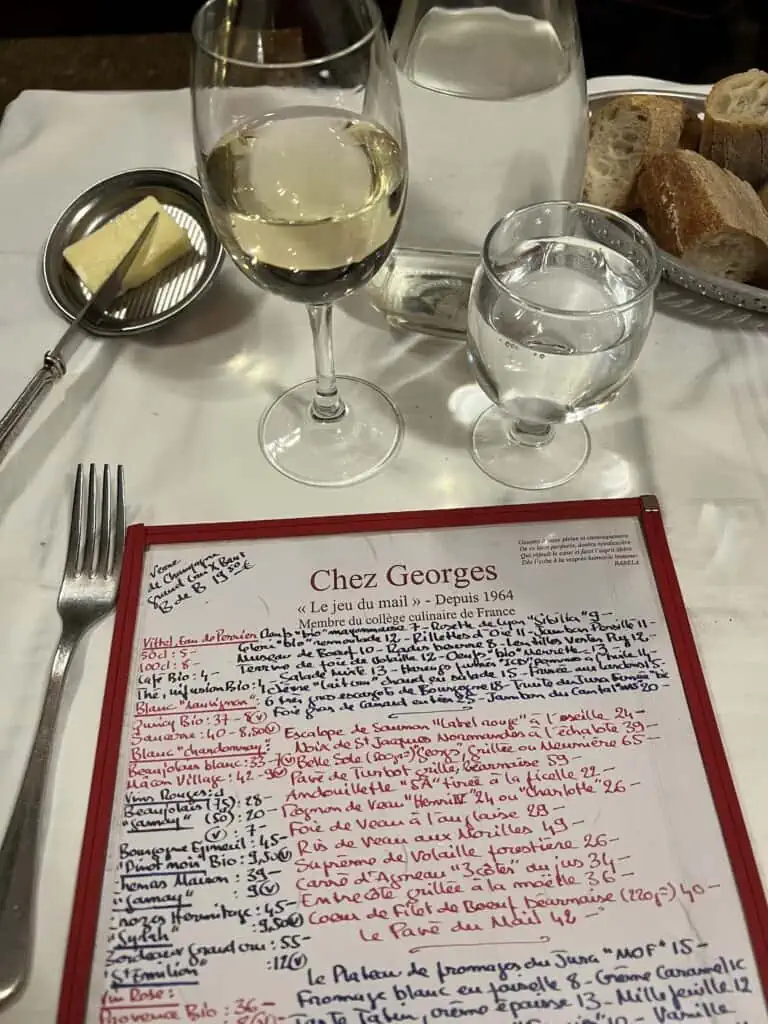 Verre
de Champagne
Grand Cru X Brut
B de B 19.50 €
RABELA
Chez Georges
« Le jeu du mail » - Depuis 1964
Membre du collège culinaire de France
Oeufs "bio" mayonnaise 7 - Rosette de Lyon "Sibilia" 9 -
Céleri "bio" remoulade 12 - Rillettes d'Oie 11 - Jambon Persillé 11 -
Museau de Boeuf 10 - Radis beurre 8 - Lentilles Vertes Puy 12 -
Terrine de foie de Volaille 12 - Oeufs "bio" Meurette 13 -
Salade Mixte 13 - Harengs fumés pommes à l'huile 14
Chèvre "laitcru" chaud en salade 15 -
6 très gros escargots de Bourgogne 18 - Truite du Jura
Foie gras de Canard entier 25 - Jambon du Cantal 20 -
Escalope de Saumon "Label rouge" à l'oseille 24 -
Noix de St Jacques Normandes à l'échalote 39 -
Belle Sole "Georges" Grillée ou Meunière 65 -
Pavé de Turbot grillé, béarnaise 59 -
Andouillette "5A" tirée à la ficelle 22 -
Rognon de Veau "Henri IV" 24 ou "Charlotte" 26 -
Foie de Veau à l'anglaise 29 -
Ris de Veau aux Morilles 49 -
Suprême de Volaille forestière 26 -
Carré d'Agneau "3 côtes" du jus 34 -
Entrecôte grillée à la moëlle 36 -
Coeur de Filet de Boeuf béarnaise (220gr) 40 -
Le Pavé du Mail 42 -
Le Plateau de fromages du Jura "MOF" 15 -
Fromage blanc en faisselle 8 - Crème Caramel
Tarte Tatin, crème épaisse 13 - Millefeuille 12
Vanille
Vittel, Eau de Perrier
50cl : 5 -
100cl : 8 -
Café Bio : 4 -
Thé, infusion Bio : 4
Blanc "Sauvignon" :
Quincy Bio : 37 - 8 (v)
Sancerre : 40 - 8,50 (v)
Blanc "chardonnay" :
Beaujolais blanc : 33 - 7 (v)
Mâcon Village : 42 - 9 (v)
Vins Rouges :
Beaujolais (75) : 28 -
"Gamay" (50) : 20 -
(v) : 7 -
Bourgogne Epineuil : 45 -
"Pinot noir" Bio : 9,50 (v)
Chenas Maison : 39 -
"Gamay" : 9 (v)
Crozes Hermitage : 45 -
"Syrah" : 9,50 (v)
Bordeaux grand cru : 55 -
"St Emilion" : 12 (v)
Vin Rosé :
Provence Bio : 36 -